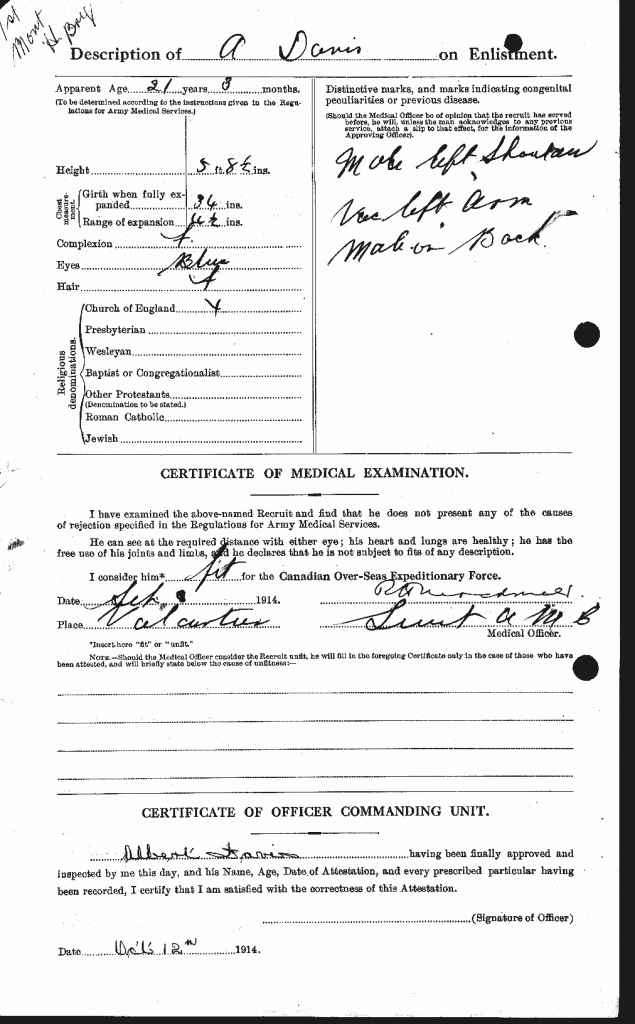 1st
Mont
H. Brig
Description of A Davis on Enlistment.
Apparent Age 21 years 3 months.
(To be determined according to the instructions given in the Regu-
lations for Army Medical Services.)
Height 5 ft. 8½ ins.
Chest measure-
ment.
Girth when fully ex-
panded 34 ins.
Range of expansion 4½ ins.
Complexion f
Eyes Blue
Hair f
Religious denominations.
Church of England Y
Presbyterian
Wesleyan
Baptist or Congregationalist
Other Protestants
(Denomination to be stated.)
Roman Catholic
Jewish
Distinctive marks, and marks indicating congenital
peculiarities or previous disease.
(Should the Medical Officer be of opinion that the recruit has served
before, he will, unless the man acknowledges to any previous
service, attach a slip to that effect, for the information of the
Approving Officer).
Mole left Shoulder
Vac left Arm
Mole on Back
CERTIFICATE OF MEDICAL EXAMINATION.
I have examined the above-named Recruit and find that he does not present any of the causes
of rejection specified in the Regulations for Army Medical Services.
He can see at the required distance with either eye; his heart and lungs are healthy; he has the
free use of his joints and limbs, and he declares that he is not subject to fits of any description.
I consider him* fit for the Canadian Over-Seas Expeditionary Force.
Date Sep. 1914.
Place Valcartier Lieut A M
Medical Officer.
*Insert here "fit" or "unfit."
NOTE.—Should the Medical Officer consider the Recruit unfit, he will fill in the foregoing Certificate only in the case of those who have
been attested, and will briefly state below the cause of unfitness:—
CERTIFICATE OF OFFICER COMMANDING UNIT.
Albert Davis having been finally approved and
inspected by me this day, and his Name, Age, Date of Attestation, and every prescribed particular having
been recorded, I certify that I am satisfied with the correctness of this Attestation.
(Signature of Officer)
Date Oct 12th 1914.